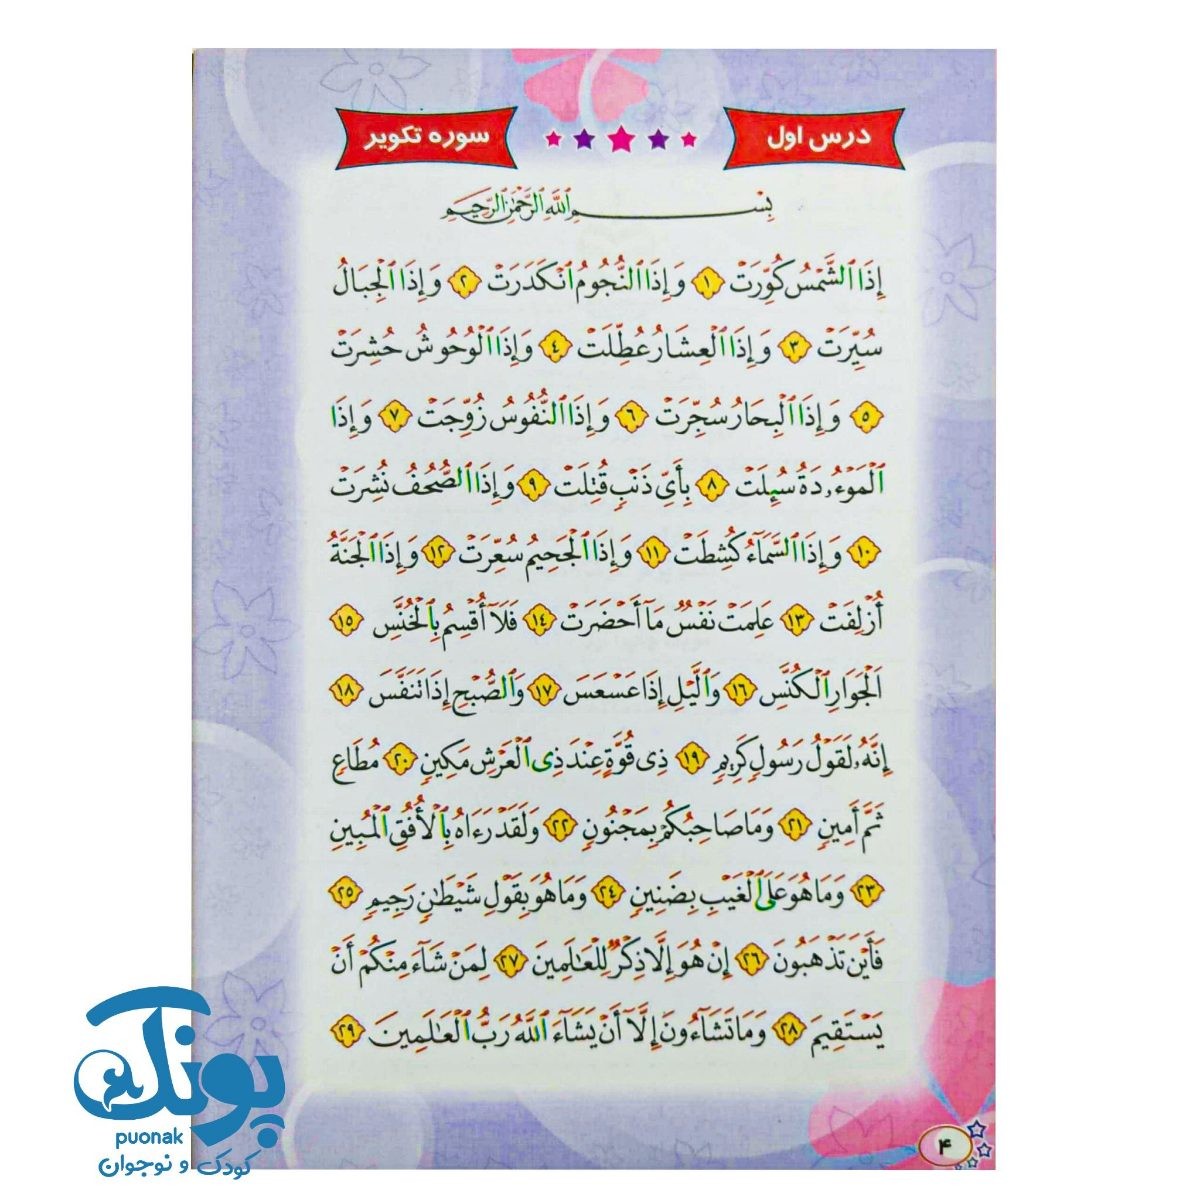 درس اول
سوره تکویر
بِسْمِ ٱللَّهِ ٱلرَّحْمَٰنِ ٱلرَّحِيمِ
إِذَا ٱلشَّمْسُ كُوِّرَتْ ١ وَ إِذَا ٱلنُّجُومُ ٱنْكَدَرَتْ ٢ وَ إِذَا ٱلْجِبَالُ
سُيِّرَتْ ٣ وَ إِذَا ٱلْعِشَارُ عُطِّلَتْ ٤ وَ إِذَا ٱلْوُحُوشُ حُشِرَتْ
٥ وَ إِذَا ٱلْبِحَارُ سُجِّرَتْ ٦ وَ إِذَا ٱلنُّفُوسُ زُوِّجَتْ ٧ وَ إِذَا
ٱلْمَوْءُۥدَةُ سُئِلَتْ ٨ بِأَيِّ ذَنْبٍ قُتِلَتْ ٩ وَ إِذَا ٱلصُّحُفُ نُشِرَتْ
١٠ وَ إِذَا ٱلسَّمَآءُ كُشِطَتْ ١١ وَ إِذَا ٱلْجَحِيمُ سُعِّرَتْ ١٢ وَ إِذَا ٱلْجَنَّةُ
أُزْلِفَتْ ١٣ عَلِمَتْ نَفْسٌ مَآ أَحْضَرَتْ ١٤ فَلَآ أُقْسِمُ بِٱلْخُنَّسِ ١٥
ٱلْجَوَارِ ٱلْكُنَّسِ ١٦ وَٱلَّيْلِ إِذَا عَسْعَسَ ١٧ وَٱلصُّبْحِ إِذَا تَنَفَّسَ ١٨
إِنَّهُۥ لَقَوْلُ رَسُولٍ كَرِيمٍ ١٩ ذِى قُوَّةٍ عِنْدَ ذِى ٱلْعَرْشِ مَكِينٍ ٢٠ مُطَاعٍ
ثَمَّ أَمِينٍ ٢١ وَمَا صَاحِبُكُمْ بِمَجْنُونٍ ٢٢ وَلَقَدْ رَءَاهُ بِٱلْأُفُقِ ٱلْمُبِينِ
٢٣ وَمَا هُوَ عَلَى ٱلْغَيْبِ بِضَنِينٍ ٢٤ وَمَا هُوَ بِقَوْلِ شَيْطَٰنٍ رَجِيمٍ ٢٥
فَأَيْنَ تَذْهَبُونَ ٢٦ إِنْ هُوَ إِلَّا ذِكْرٌ لِلْعَٰلَمِينَ ٢٧ لِمَنْ شَآءَ مِنْكُمْ أَنْ
يَسْتَقِيمَ ٢٨ وَمَا تَشَآءُونَ إِلَّآ أَنْ يَشَآءَ ٱللَّهُ رَبُّ ٱلْعَٰلَمِينَ ٢٩
۴
پونک
puonak
کودک و نوجوان